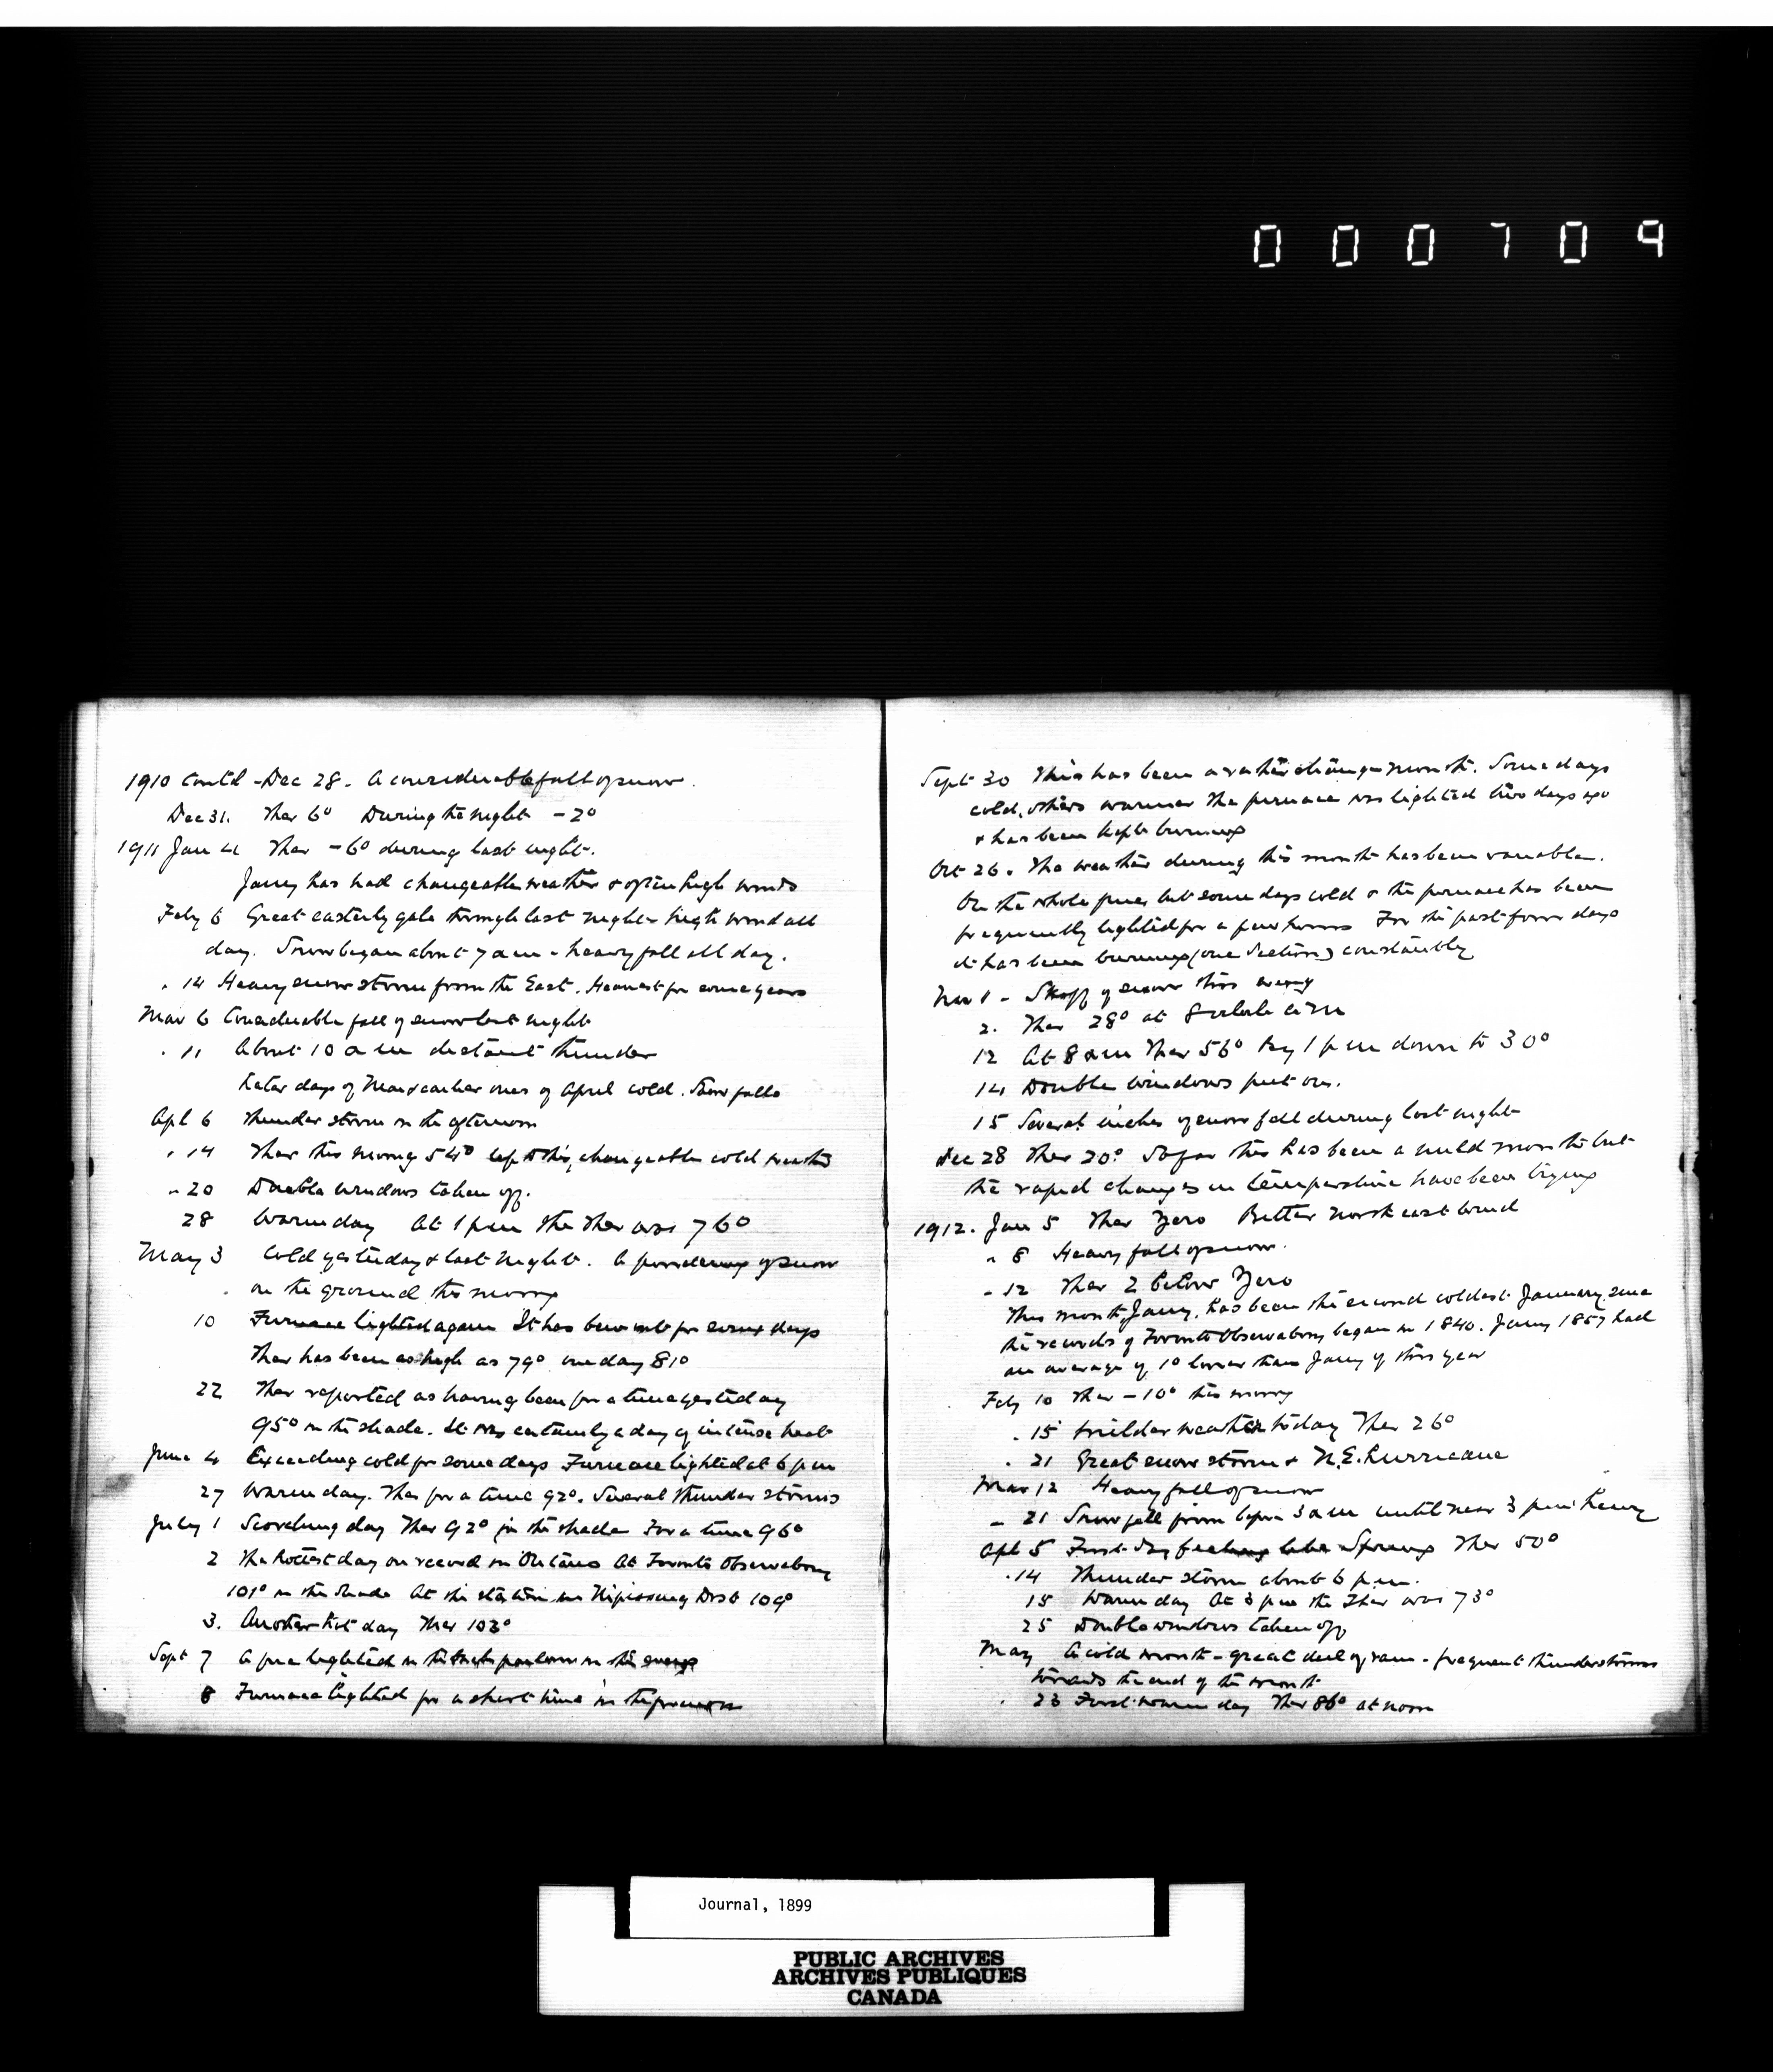 000709
1910 Contd - Dec 28. A considerable fall of snow.
Dec 31. Ther 6° During the night -2°
1911 Jan 4 Ther -6° during last night.
Jany has had changeable weather & often high winds
Feby 6 Great easterly gale through last night - high wind all
day. Snow began about 7 a m - heavy fall all day.
" 14 Heavy snow storm from the East. Heaviest for some years
Mar 6 Considerable fall of snow last night
" 11 About 10 a m distant thunder
Later days of Mar & earlier ones of April cold. Snow falls
Apl 6 Thunder storm in the afternoon
" 14 Ther this morng 54° up to this, changeable cold weather
" 20 Double windows taken off.
28 Warm day At 1 p m the Ther was 76°
May 3 Cold yesterday & last night. A powdering of snow
on the ground this morng
10 Furnace lighted again It has been out for some days
Ther has been as high as 79° one day 81°
22 Ther reported as having been for a time yesterday
95° in the shade. It was certainly a day of intense heat
June 4 Exceeding cold for some days Furnace lighted at 6 p m
27 Warm day. Ther for a time 92°. Several thunder storms
July 1 Scorching day Ther 92° in the shade For a time 96°
2 The hottest day on record in Ontario At Toronto Observatory
101° in the shade At the station in Nipissing Dist 109°
3. Another hot day Ther 103°
Sept 7 A fire lighted in the back parlour in the eveng
8 Furnace lighted for a short time in the forenoon
Sept 30 This has been a rather change month. Some days
cold, others warmer The furnace was lighted two days ago
& has been kept burning
Oct 26. The weather during this month has been variable.
On the whole fine, but some days cold & the furnace has been
frequently lighted for a few hours For the past four days
it has been burning (one section) constantly
Nov 1 - Skiff of snow this eveng
2. Ther 28° at 8 o'clock a m
12 At 8 a m Ther 56° by 1 p m down to 30°
14 Double windows put on.
15 Several inches of snow fell during last night
Dec 28 Ther 20° So far this has been a mild month but
the rapid changes in temperature have been trying
1912. Jan 5 Ther Zero Bitter north east wind
" 8 Heavy fall of snow.
" 12 Ther 2 below Zero
This month Jany. has been the second coldest January since
the records of Toronto Observatory began in 1840. Jany 1857 had
an average of 1° lower than Jany of this year
Feby 10 Ther -10° this morng
" 15 Milder weather today Ther 26°
" 21 Great snow storm & N.E. hurricane
Mar 12 Heavy fall of snow
" 21 Snow fell from before 3 a m until near 3 p m heavy
Apl 5 First day feeling like Spring Ther 50°
" 14 Thunder storm about 6 p.m.
15 Warm day At 3 p m the Ther was 73°
25 Double windows taken off
May A cold month - great deal of rain - frequent thunderstorms
towards the end of the month
23 First warm day Ther 86° at noon
Journal, 1899
PUBLIC ARCHIVES
ARCHIVES PUBLIQUES
CANADA